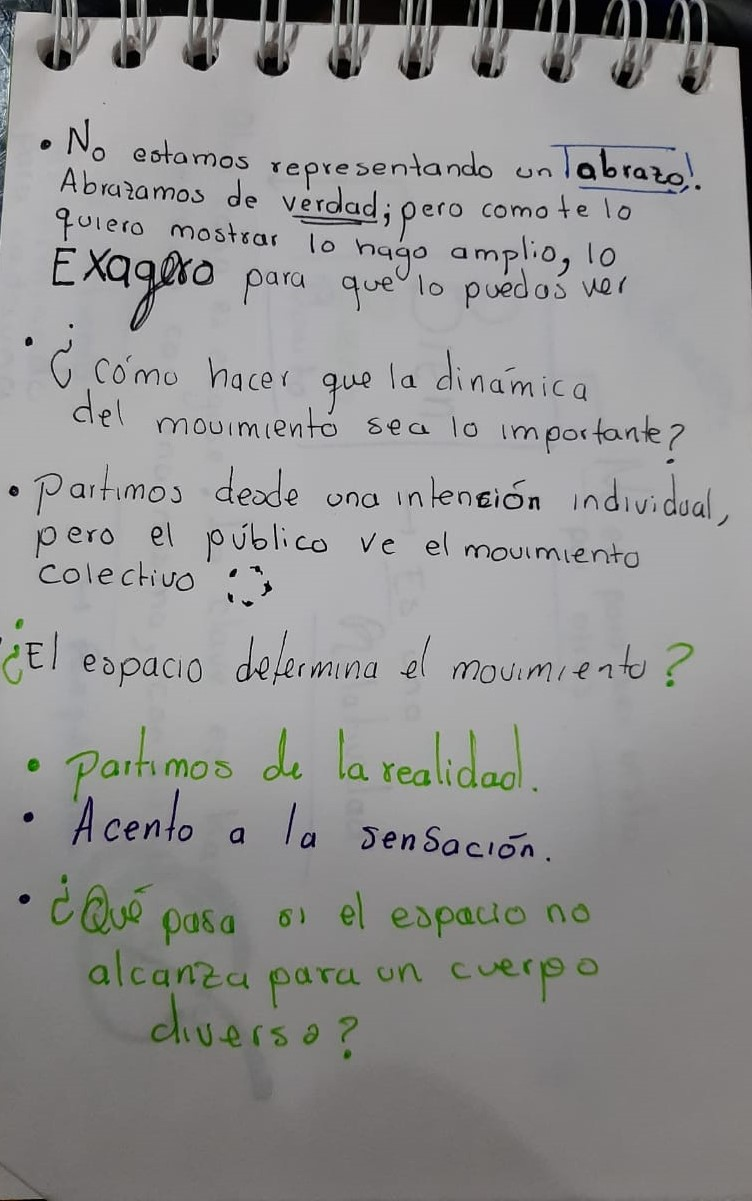 • No estamos representando un abrazo!.
Abrazamos de verdad; pero como te lo
quiero mostrar lo hago amplio, lo
Exagero para que lo puedas ver
• ¿cómo hacer que la dinámica
del movimiento sea lo importante?
• Partimos desde una intención individual,
pero el público ve el movimiento
colectivo
¿El espacio determina el movimiento?
• Partimos de la realidad.
• Acento a la sensación.
• ¿Qué pasa si el espacio no
alcanza para un cuerpo
diverso?